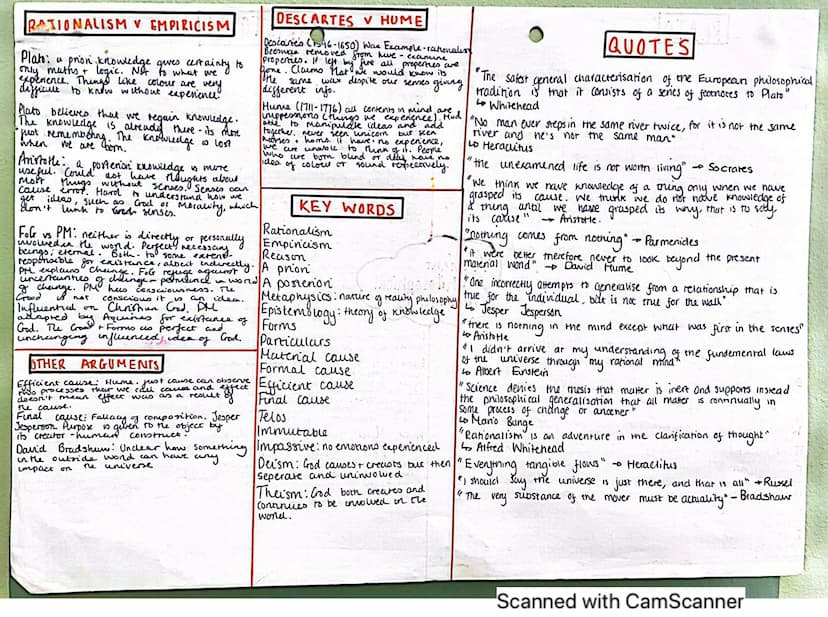 RATIONALISM V EMPIRICISM
Plato: a priori knowledge gives certainty to
only maths + logic. Not to what we
experience. Things like colour are very
difficult to know without experience.
Plato believes that we regain knowledge.
The knowledge is already there - its more
just remembering. The knowledge is lost
when we are born.
Aristotle: a posteriori knowledge is more
useful. Could not have thoughts about
most things without senses. Senses can
cause error. Hard to understand how we
get ideas, such as God or Morality, which
don't link to senses.
FoG vs PM: neither is directly or personally
involved in the world. Perfect, necessary
beings; eternal. Both to some extent
responsible for existence, albeit indirectly.
PM explains change. FoG refuge against
uncertainties of change + in world
of change. PM has consciousness. The
Good is not conscious it is an idea.
Influential on Christian God. PM
adapted by Aquinas for existence of
God. The Good + Forms as perfect and
unchanging influenced idea of God.
OTHER ARGUMENTS
Efficient cause: Hume. just cause can observe
two processes that we call cause and effect
doesn't mean effect was as a result of
the cause.
Final cause: Fallacy of composition. Jesper
Jesperson. Purpose is given to the object by
its creator - human construct.
David Bradshaw: Unclear how something
in the outside world can have any
impact on the universe
DESCARTES V HUME
Descartes (1596-1650) Wax Example - rationalism
Beeswax removed from hive - examine
properties. If left by fire all properties are
gone. Claims that we would know its
the same wax despite our senses giving
different info.
Hume (1711-1776) all contents in mind are
impressions (things we experience). Mind
able to manipulate ideas and add
together. never seen unicorn but seen
horses + horns. If have no experience,
we are unable to think of it. People
who are born blind or deaf have no
idea of colour or sound respectively.
KEY WORDS
Rationalism
Empiricism
Reason
A priori
A posteriori
Metaphysics: nature of reality philosophy
Epistemology: theory of knowledge
Forms
Particulars
Material cause
Formal cause
Efficient cause
Final cause
Telos
Immutable
Impassive: no emotions experienced
Deism: God causes + creates but then
seperate and uninvolved
Theism: God both creates and
continues to be involved in the
world.
QUOTES
"The safest general characterisation of the European philosophical
tradition is that it consists of a series of footnotes to Plato"
↳ Whitehead
"No man ever steps in the same river twice, for it is not the same
river and he's not the same man"
↳ Heraclitus
"the unexamined life is not worth living" → Socrates
"We think we have knowledge of a thing only when we have
grasped its cause. We think we do not have knowledge of
a thing until we have grasped its why, that is to say,
its cause" → Aristotle.
"nothing comes from nothing" → Parmenides
"it were better therefore never to look beyond the present
material world" → David Hume
"One incorrectly attempts to generalise from a relationship that is
true for the individual, but is not true for the wall"
↳ Jesper Jesperson
"there is nothing in the mind except what was first in the senses"
↳ Aristotle
"I didn't arrive at my understanding of the fundemental laws
of the universe through my rational mind"
↳ Albert Einstein
"Science denies the thesis that matter is inert and supports instead
the philosophical generalisation that all matter is continually in
some process of change or another"
↳ Mario Bunge
"Rationalism is an adventure in the clarification of thought"
↳ Alfred Whitehead
"Everything tangible flows" → Heraclitus
"I should say the universe is just there, and that is all" → Russel
"The very substance of the mover must be actuality" - Bradshaw
Scanned with CamScanner